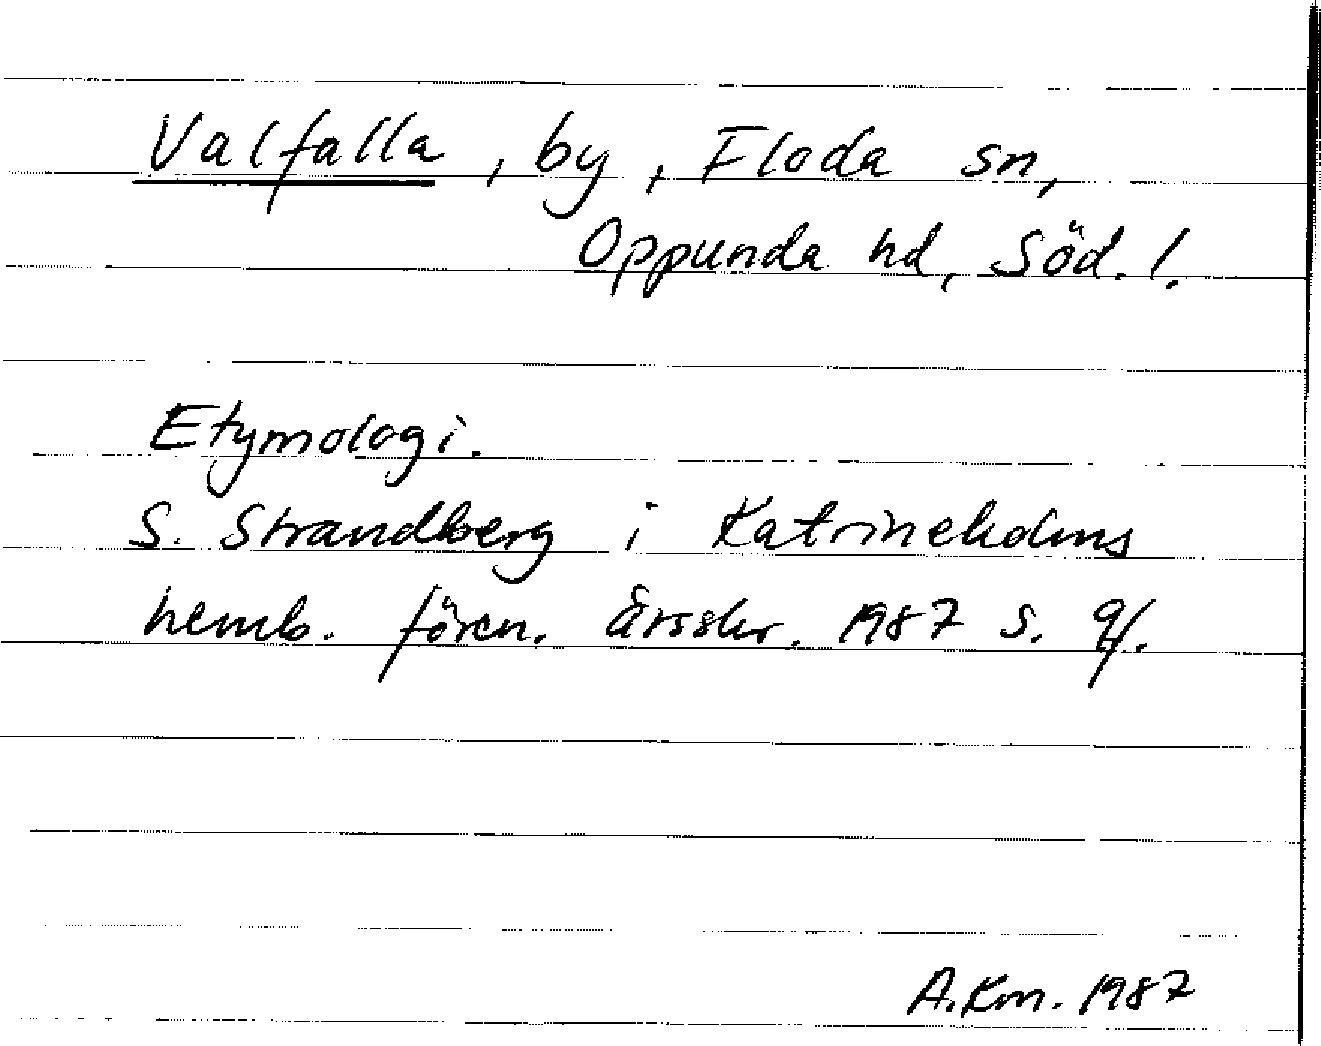 Valfalla, by, Floda sn,
Oppunda hd, Söd. l.
Etymologi.
S. Strandberg i Katrineholms
hemb. fören. årsskr. 1987 s. 9f.
A.Km. 1987